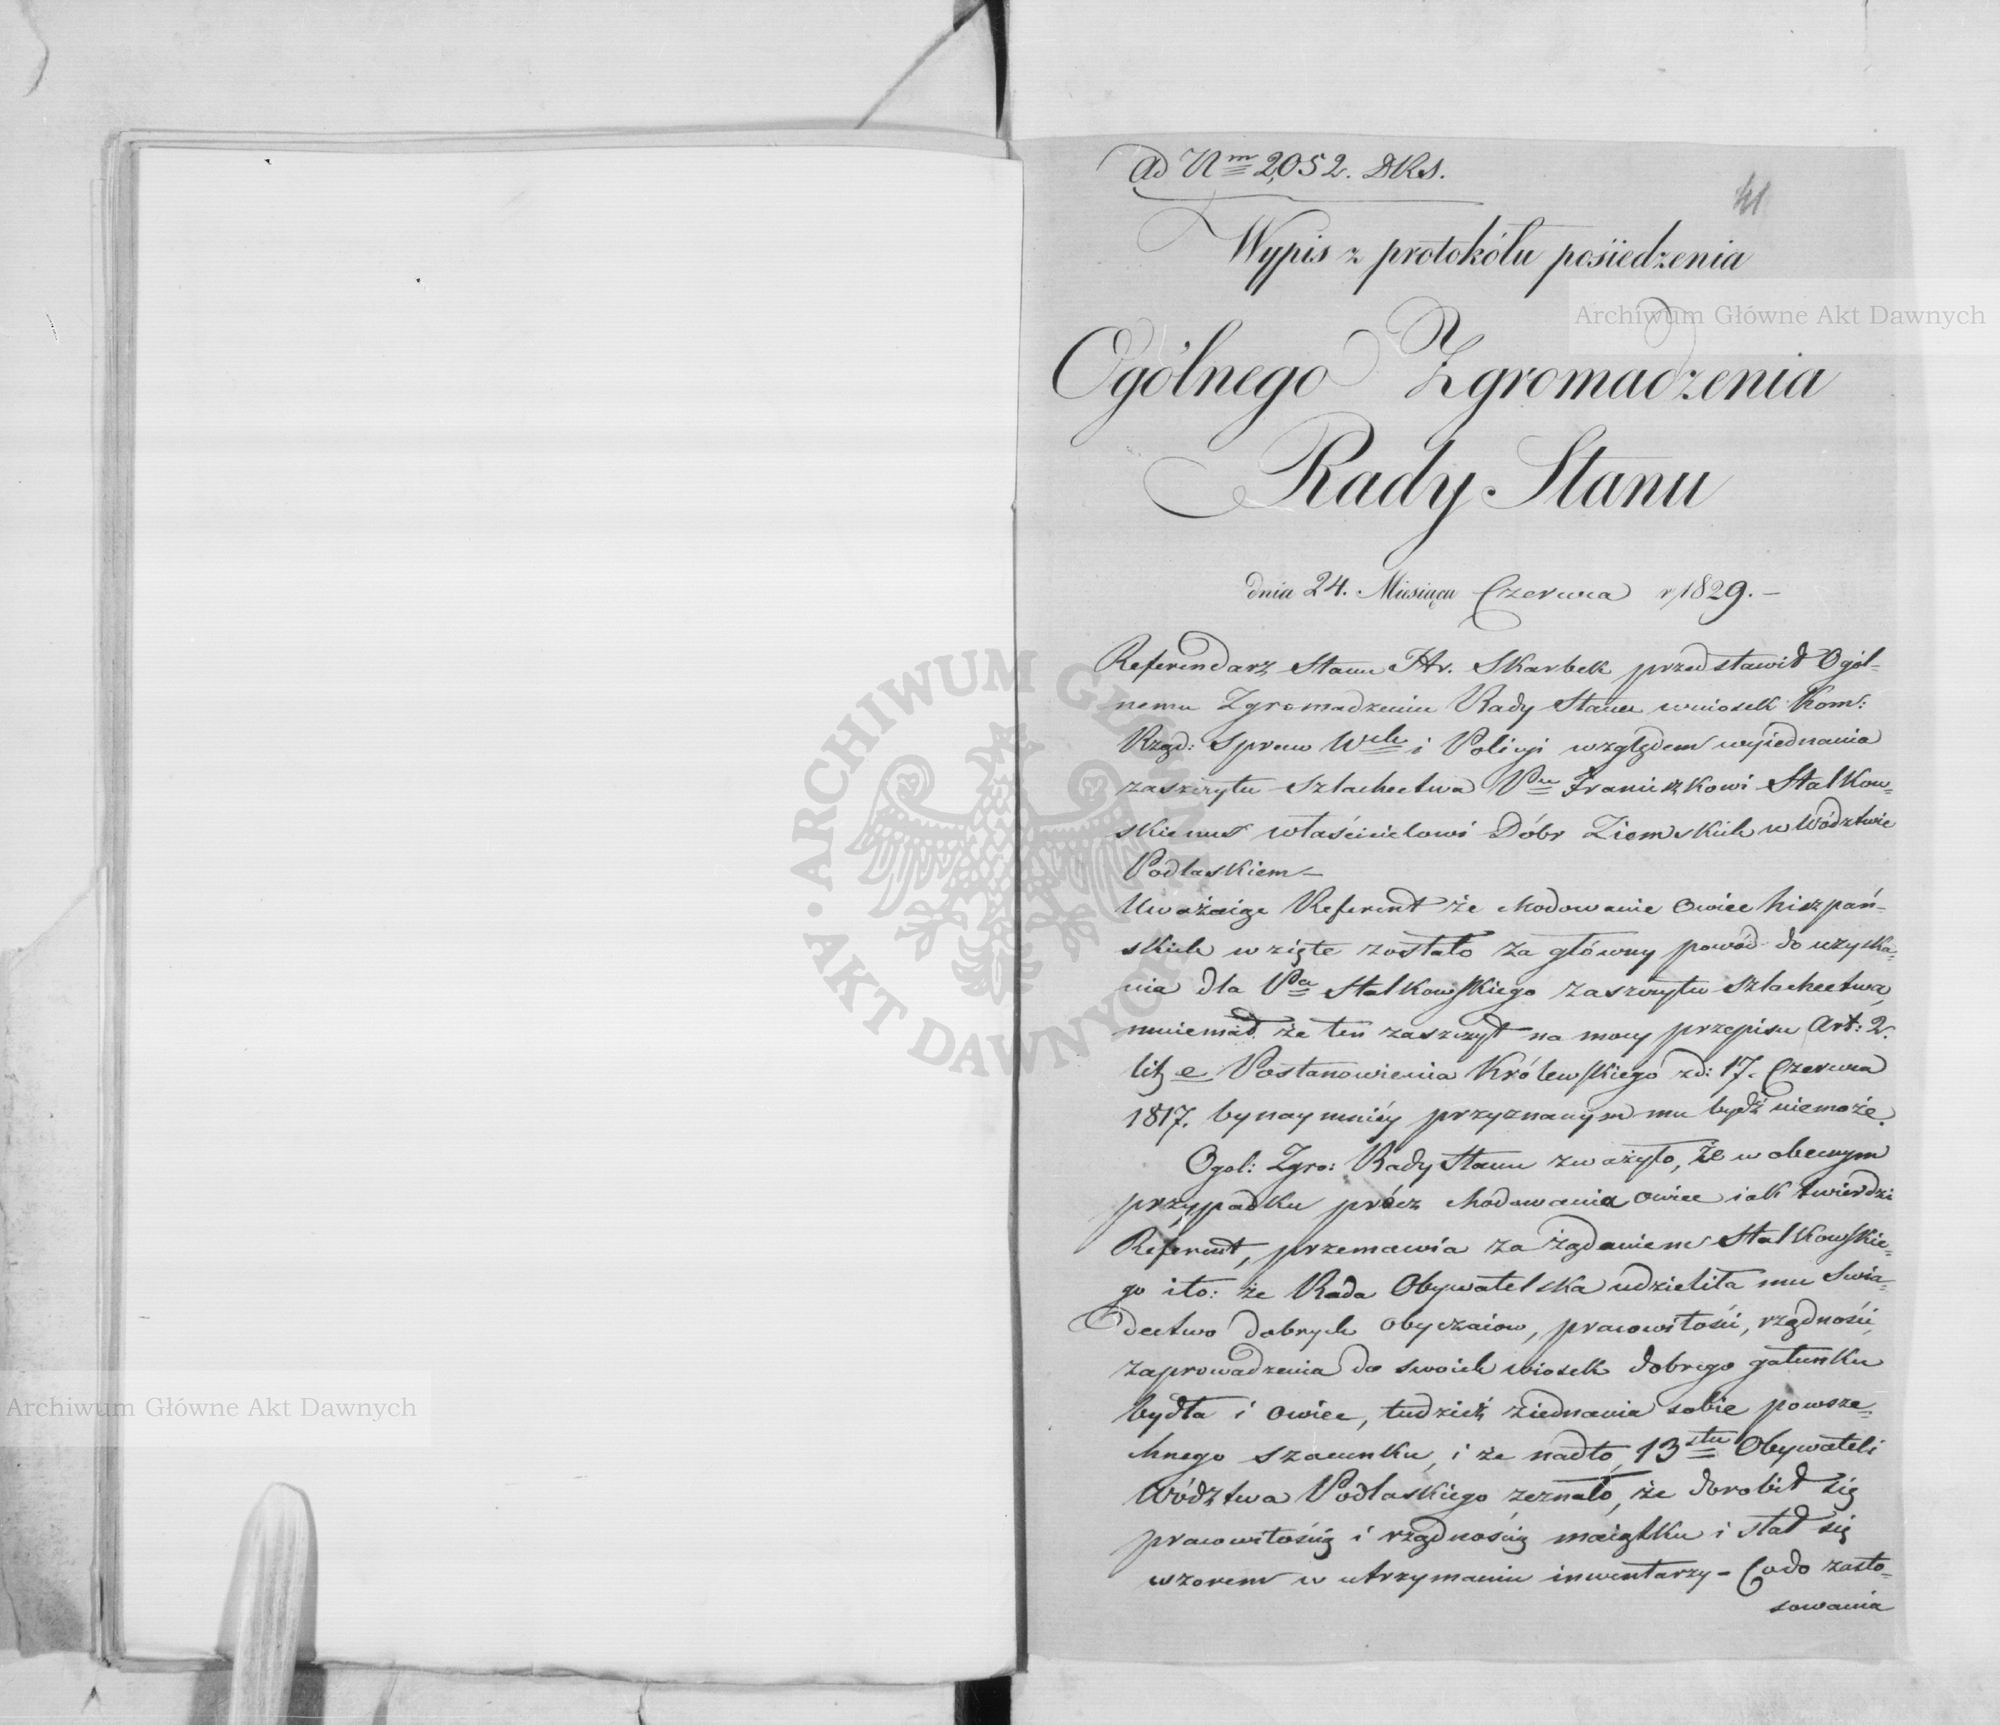 Ad Nm 2,052. DKS.
41
Wypis z protokólu posiedzenia
Archiwum Główne Akt Dawnych
Ogólnego Zgromadzenia
Rady Stanu
dnia 24. Miesiąca Czerwca r 1829. –
Referendarz Stanu Hr. Skarbek przedstawił Ogól=
nemu Zgromadzeniu Rady Stanu wniosek Kom:
Rząd: Spraw Wch i Policyi względem wyiednania
zaszczytu szlachectwa Pu Franciszkowi Stalkow=
skiemu właścicielowi Dóbr Ziemskich w Wództwie
Podlaskiem –
Uważaiąc Referent że chodowanie owiec hiszpań=
skich wzięte zostało za główny powód do uzyska=
nia dla Pa Stalkowskiego zaszczytu szlachectwa,
mniemał że ten zaszczyt na mocy przepisu Art: 2.
lit e Postanowienia Królewskiego zd: 17. Czerwca
1817. bynaymniéy przyznanym mu bydź niemoże.
Ogol: Zgro: Rady Stanu zważyło, że w obecnym
przypadku prócz chodowania owiec iak twierdzi
Referent, przemawia za żądaniem Stalkowskie=
go ito: że Rada Obywatelska udzieliła mu Swia=
dectwo dobrych obyczaiow, pracowitości, rządności,
zaprowadzenia do swoich wiosek dobrego gatunku
bydła i owiec, tudzież ziednania sobie powsze=
chnego szacunku, i że nadto, 13stu Obywateli
Wództwa Podlaskiego zeznało, że dorobił się
pracowitością i rządnością maiątku i stał się
wzorem w utrzymaniu inwentarzy – Codo zasto=
sowania
ARCHIWUM GŁÓWNE AKT DAWNYCH
Archiwum Główne Akt Dawnych